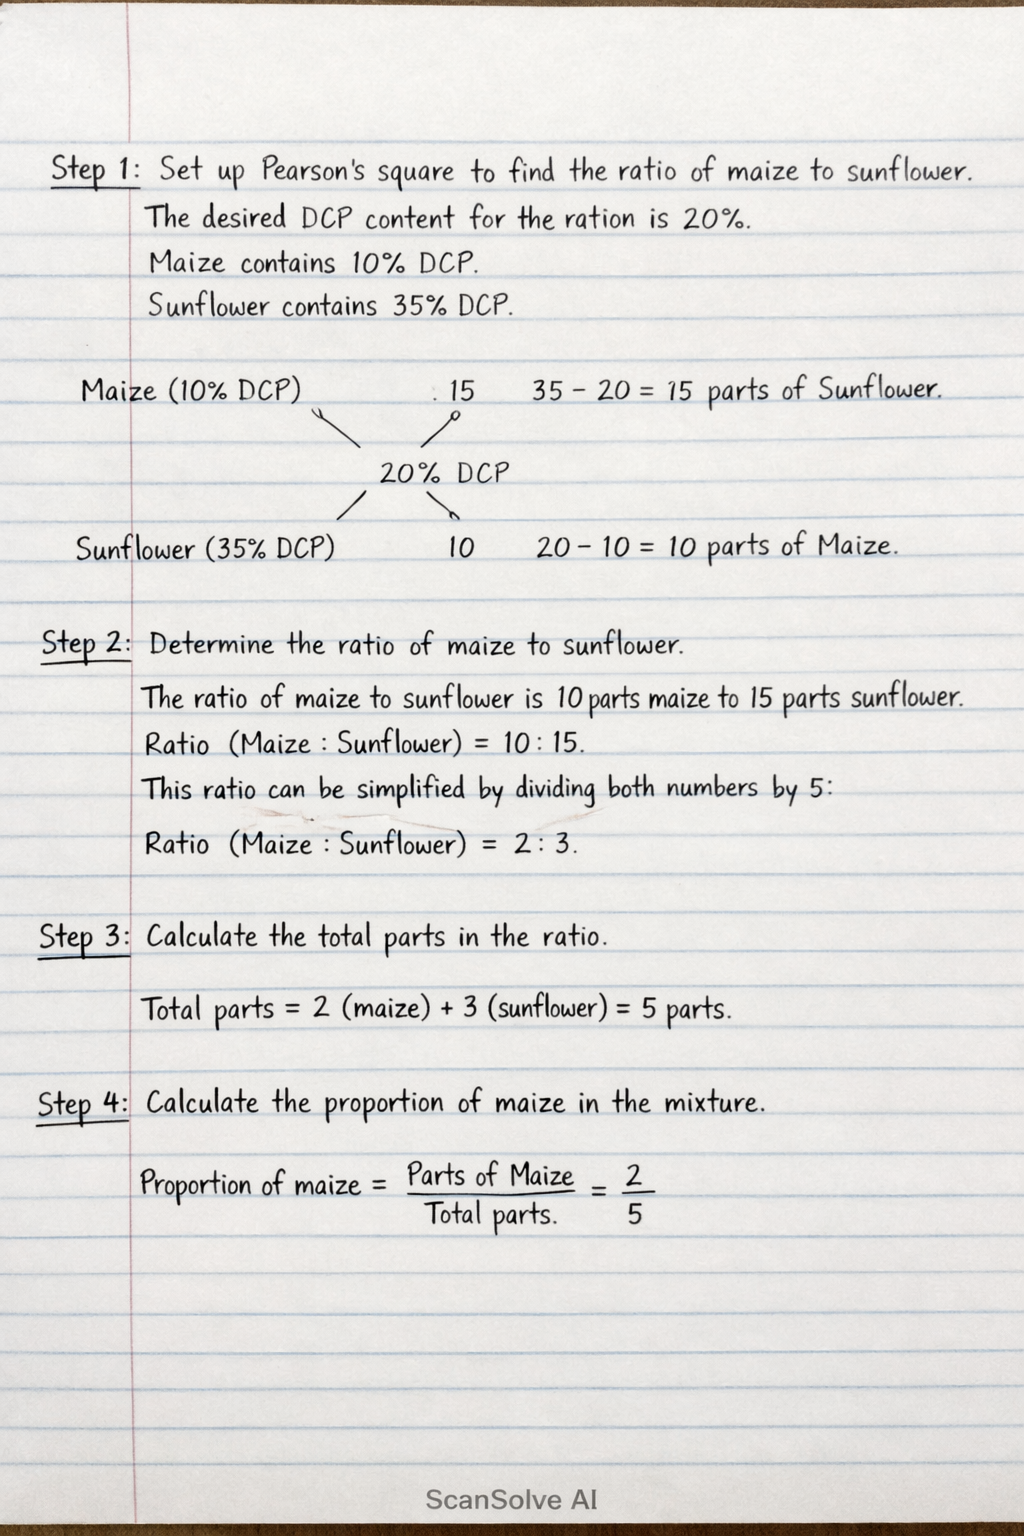 Step 1: Set up Pearson's square to find the ratio of maize to sunflower.
The desired DCP content for the ration is 20%.
Maize contains 10% DCP.
Sunflower contains 35% DCP.
Maize (10% DCP) 15 35 - 20 = 15 parts of Sunflower.
20% DCP
Sunflower (35% DCP) 10 20 - 10 = 10 parts of Maize.
Step 2: Determine the ratio of maize to sunflower.
The ratio of maize to sunflower is 10 parts maize to 15 parts sunflower.
Ratio (Maize : Sunflower) = 10 : 15.
This ratio can be simplified by dividing both numbers by 5:
Ratio (Maize : Sunflower) = 2 : 3.
Step 3: Calculate the total parts in the ratio.
Total parts = 2 (maize) + 3 (sunflower) = 5 parts.
Step 4: Calculate the proportion of maize in the mixture.
Proportion of maize = Parts of Maize / Total parts. = 2 / 5
ScanSolve AI